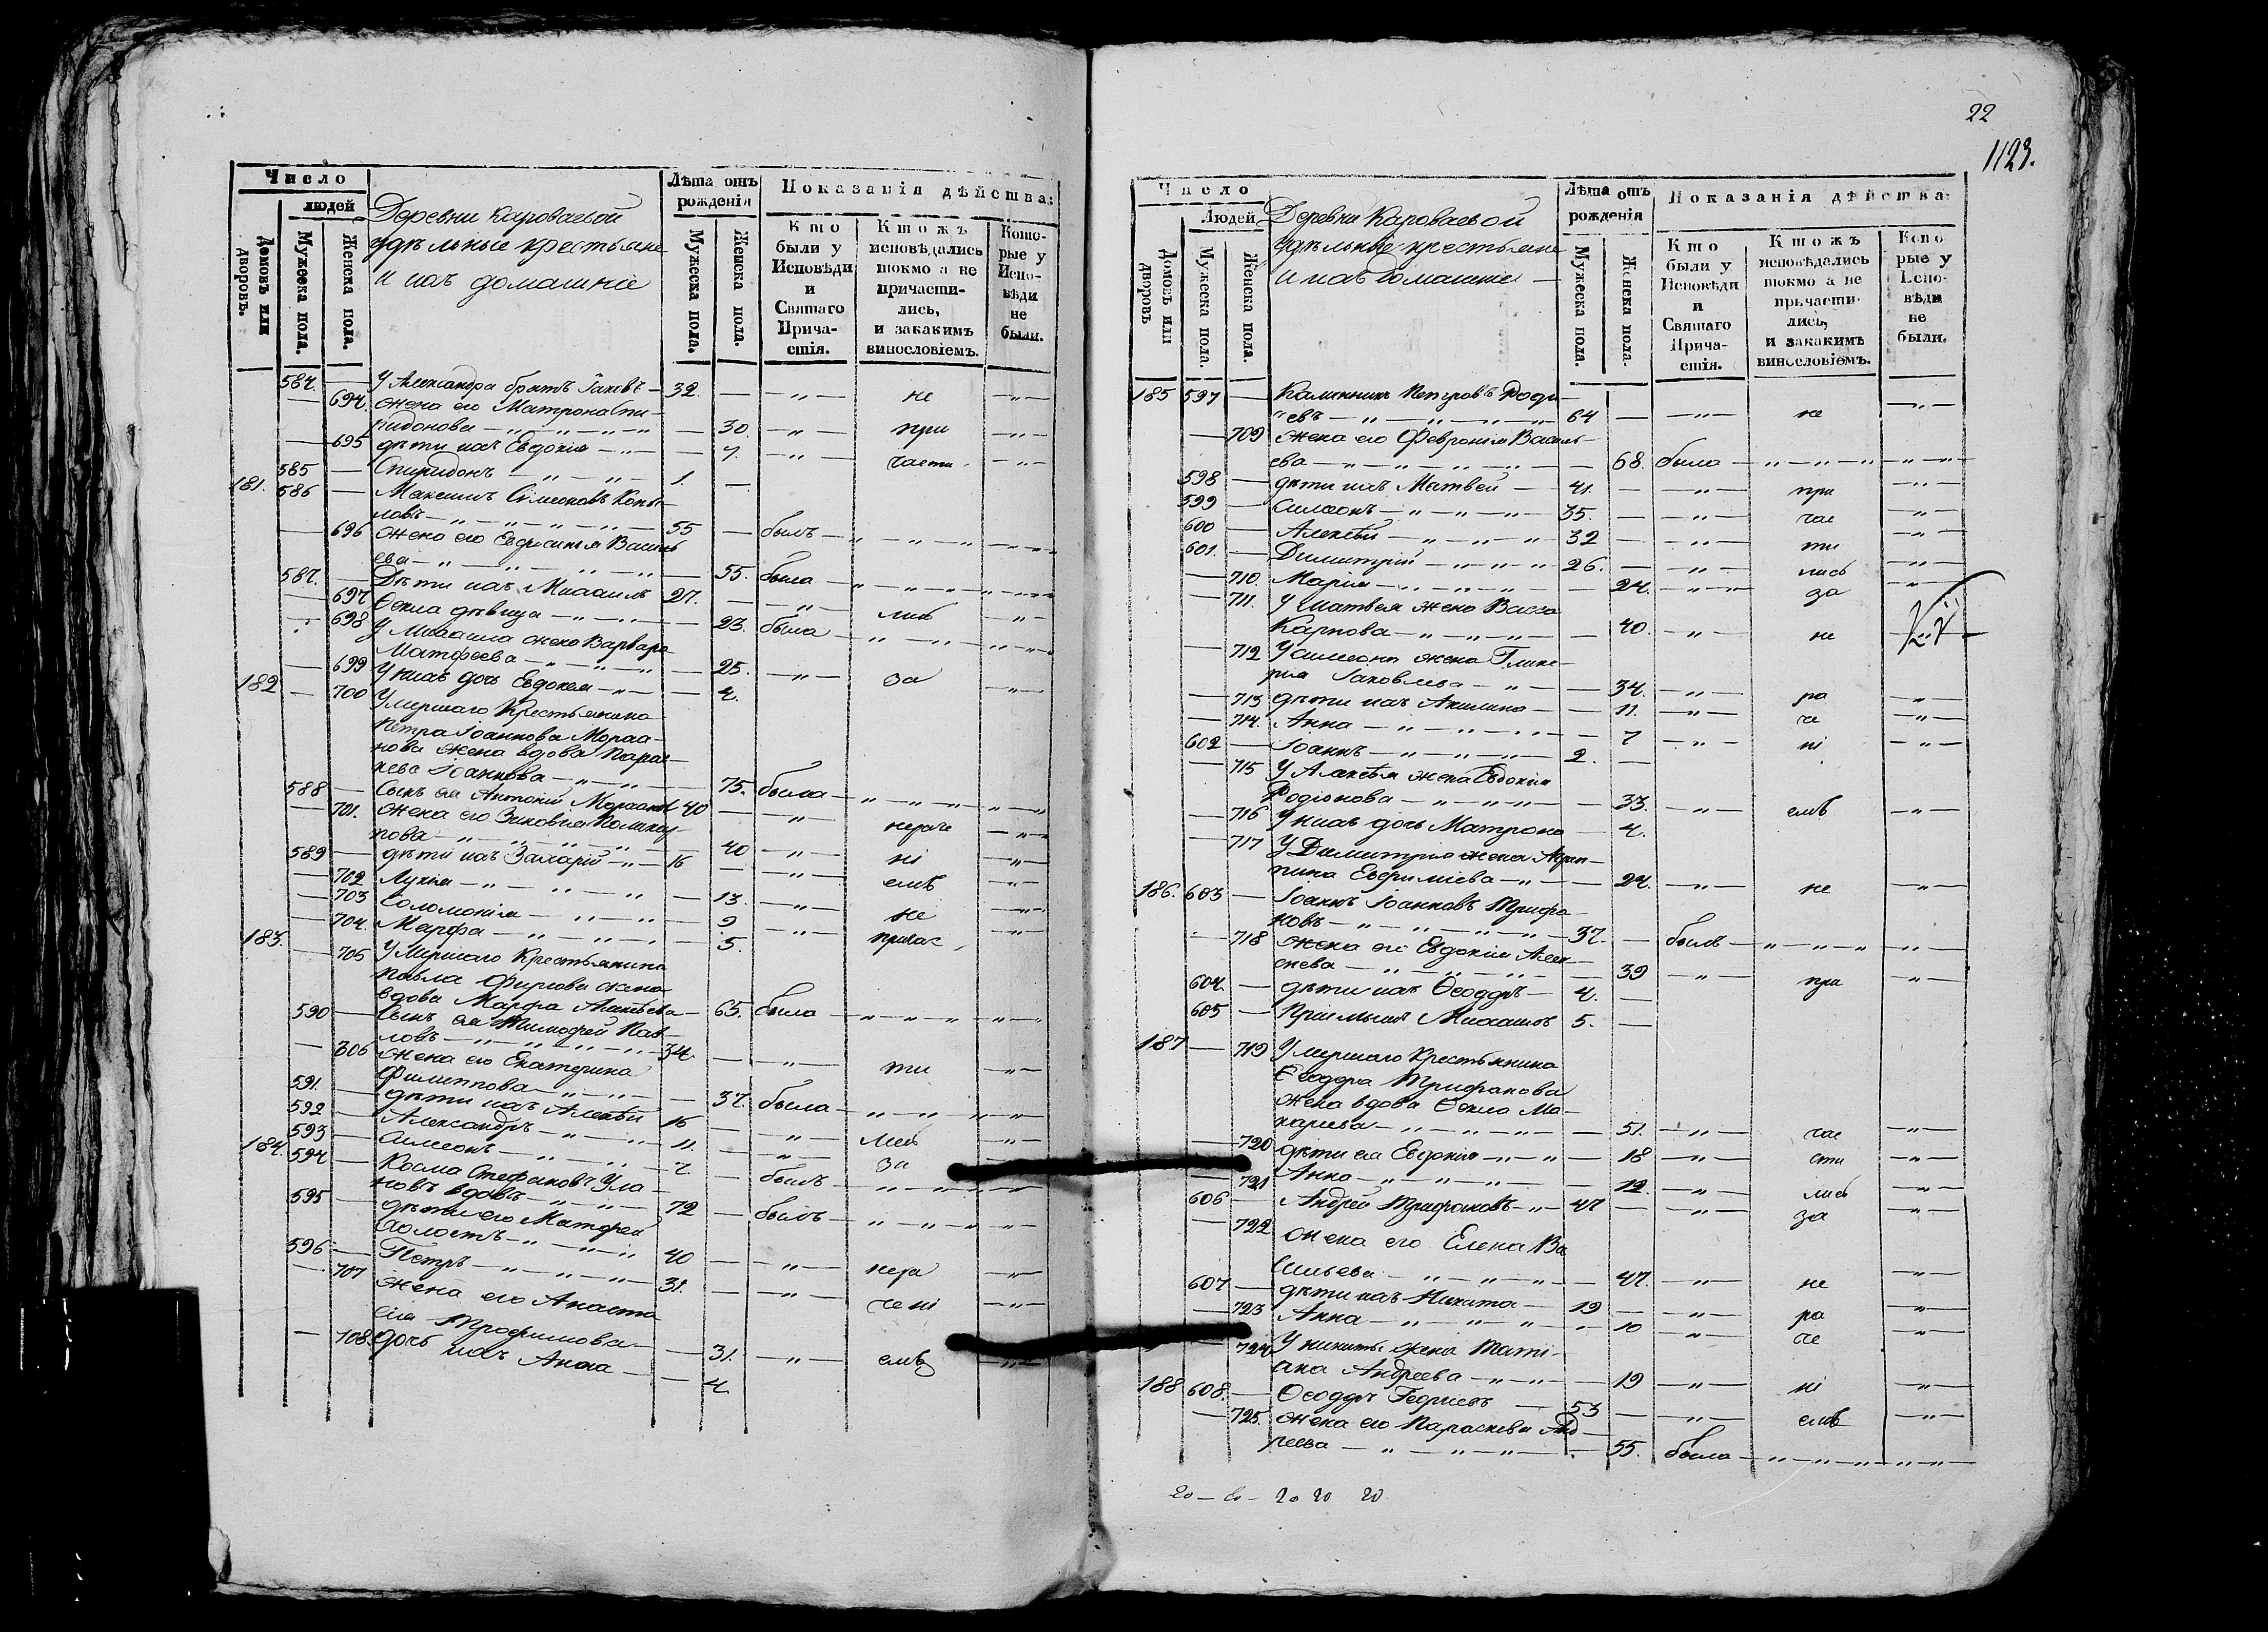 Число
людей
Домовъ или дворовъ.
Мужеска пола.
Женска пола.
Деревни Кароваевой
удѣльные крестьяне
и ихъ домашніе
Лѣта отъ рожденія
Мужеска пола.
Женска пола.
Показанія дѣйства:
Кто были у Исповѣди и Святаго Причастія.
Ктожъ исповѣдались токмо а не причастились, и закакимъ винословіемъ.
Которые у Исповѣди не были.
584. — У Александра братъ Іаковъ — 32. — „ — не — „ —
— 694. жена его Матрона Спи-
ридонова — „ — „ — 30. — „ — при — „ —
— 695 дѣти ихъ Евдокія — „ — 7. — „ — части — „ —
585 — Спиридонъ — „ — „ — 1. —
181. 586 — Максимъ Симеоновъ Копы-
ловъ — „ — „ — „ — 55 — былъ — „ — „ — „ —
— 696 жена его Евфросинья Василь
ева — „ — „ — „ — 55. была — „ — „ — „ —
587. — Дѣти ихъ Михаилъ 27. — „ — лись — „ —
— 697 Ѳекла дѣвица — „ — 23. была — „ — „ — „ —
698 У Михаила жена Варвара
Матфеева — „ — „ — 25. — „ — за — „ —
— 699 У нихъ дочь Евдокея — „ — 4.
182 — 700 Умершаго Крестьянина
Петра Іоаннова Морха-
нова жена вдова Парас-
кева Іоаннова — „ — 75. была — „ — „ — „ —
588 — Сынъ ея Антоній Морхановъ 40 — „ — нераче — „ —
— 701. жена его Зиновія Поликар-
пова — „ — „ — „ — 40 — „ — ні — „ —
589 — дѣти ихъ Захарій — „ — 16 — „ — емъ — „ —
— 702 Лукія — „ — „ — 13. — „ — не — „ —
— 703 Соломонія — „ — „ — 9 — „ — причас — „ —
— 704. Марфа — „ — „ — 5.
183. — 705 Умершаго Крестьянина
Павла Фирсова жена
вдова Марфа Алексѣева — 65. была — „ — „ — „ —
590 — Сынъ ея Тимофей Пав-
ловъ — „ — „ — „ — 34. — „ — ти — „ —
— 306 жена его Екатерина
Филиппова — „ — „ — 37. была — „ — „ — „ —
591. — дѣти ихъ Алексѣй 16 — „ — лись — „ —
592 — Александръ — „ — „ — 11. — „ — за — „ —
593 — Симеонъ — „ — „ — 7 — былъ — „ — „ — „ —
184. 594 — Косма Стефановъ Ула-
новъ вдовъ — „ — „ — 72 — былъ — „ — „ — „ —
595 — дѣти его Матфей
холостъ — „ — „ — 40 — „ — нера — „ —
596 — Петръ — „ — „ — 31. — „ — чені — „ —
— 707 жена его Анаста
сія Трофимова — 31. — „ — емъ — „ —
— 708. дочь ихъ Анна — — 4.
22
1123.
Число
Людей
Домовъ или дворовъ
Мужеска пола.
Женска пола.
Деревни Кароваевой
удѣльные крестьяне
и ихъ домашніе —
Лѣта отъ рожденія
Мужеска пола.
Женска пола.
Показанія дѣйства:
Кто были у Исповѣди и Святаго Причастія.
Ктожъ исповѣдались токмо а не причастились, и закакимъ винословіемъ.
Которые у Исповѣди не были.
185 597 — Калинникъ Петровъ Роди-
евъ — „ — „ — „ — 64 — „ — не — „ —
— 709 жена его Февронія Василь-
ева — „ — „ — „ — 68. была — „ — „ — „ —
598 — дѣти ихъ Матвей — 41. — „ — при — „ —
599 — Симеонъ — „ — „ — 35. — „ — час — „ —
600 — Алексѣй — „ — „ — 32 — „ — ти — „ —
601. — Димитрій — „ — „ — 26. — „ — лись — „ —
— 710. Марія — „ — „ — 24. — „ — за — „ —
— 711. У Матвея жена Васса
Карпова — „ — „ — 40. — „ — не — „ —
— 712 У Симеона жена Глике-
рія Іаковлева — „ — 34. — „ — ра — „ —
— 713 дѣти ихъ Акилина — 11. — „ — че — „ —
— 714. Анна — „ — „ — 7 — „ — ні — „ —
602 — Іоаннъ — „ — „ — 2. —
— 715 У Алексѣя жена Евдокія
Родіонова — „ — „ — 33. — „ — емъ — „ —
— 716 У нихъ дочь Матрона — 4.
— 717 У Димитрія жена Агрип-
пина Евфиміева — „ — 24. — „ — не — „ —
186. 603 — Іоаннъ Іоанновъ Трифа-
новъ — „ — „ — „ — 37. — былъ — „ — „ — „ —
— 718 жена его Евдокія Алек-
сѣева — „ — „ — 39 — „ — при — „ —
604. — дѣти ихъ Ѳеодоръ — 4. —
605 — Пріемышъ Михаилъ 5. —
187 — 719 Умершаго Крестьянина
Ѳеодора Трифанова
жена вдова Ѳекла Ма-
карьева — „ — „ — 51. — „ — час — „ —
— 720 дѣти ея Евдокія — „ — 18 — „ — сти — „ —
— 721 Анна — „ — „ — 12. — „ — лись — „ —
606 — Андрей Трифановъ — „ — 47 — „ — за — „ —
— 722 жена его Елена Ва
сильева — „ — „ — 47. — „ — не — „ —
607 — дѣти ихъ Никита — 19 — „ — ра — „ —
— 723 Анна — „ — „ — 10 — „ — че — „ —
— 724 У Никиты жена Таті-
ана Андреева — „ — 19 — „ — ні — „ —
188 608. — Ѳеодоръ Георгіевъ — 53 — „ — емъ — „ —
— 725. жена его Параскева Анд-
реева — „ — „ — 55. была — „ — „ — „ —
20 — 20 — 20 20 20